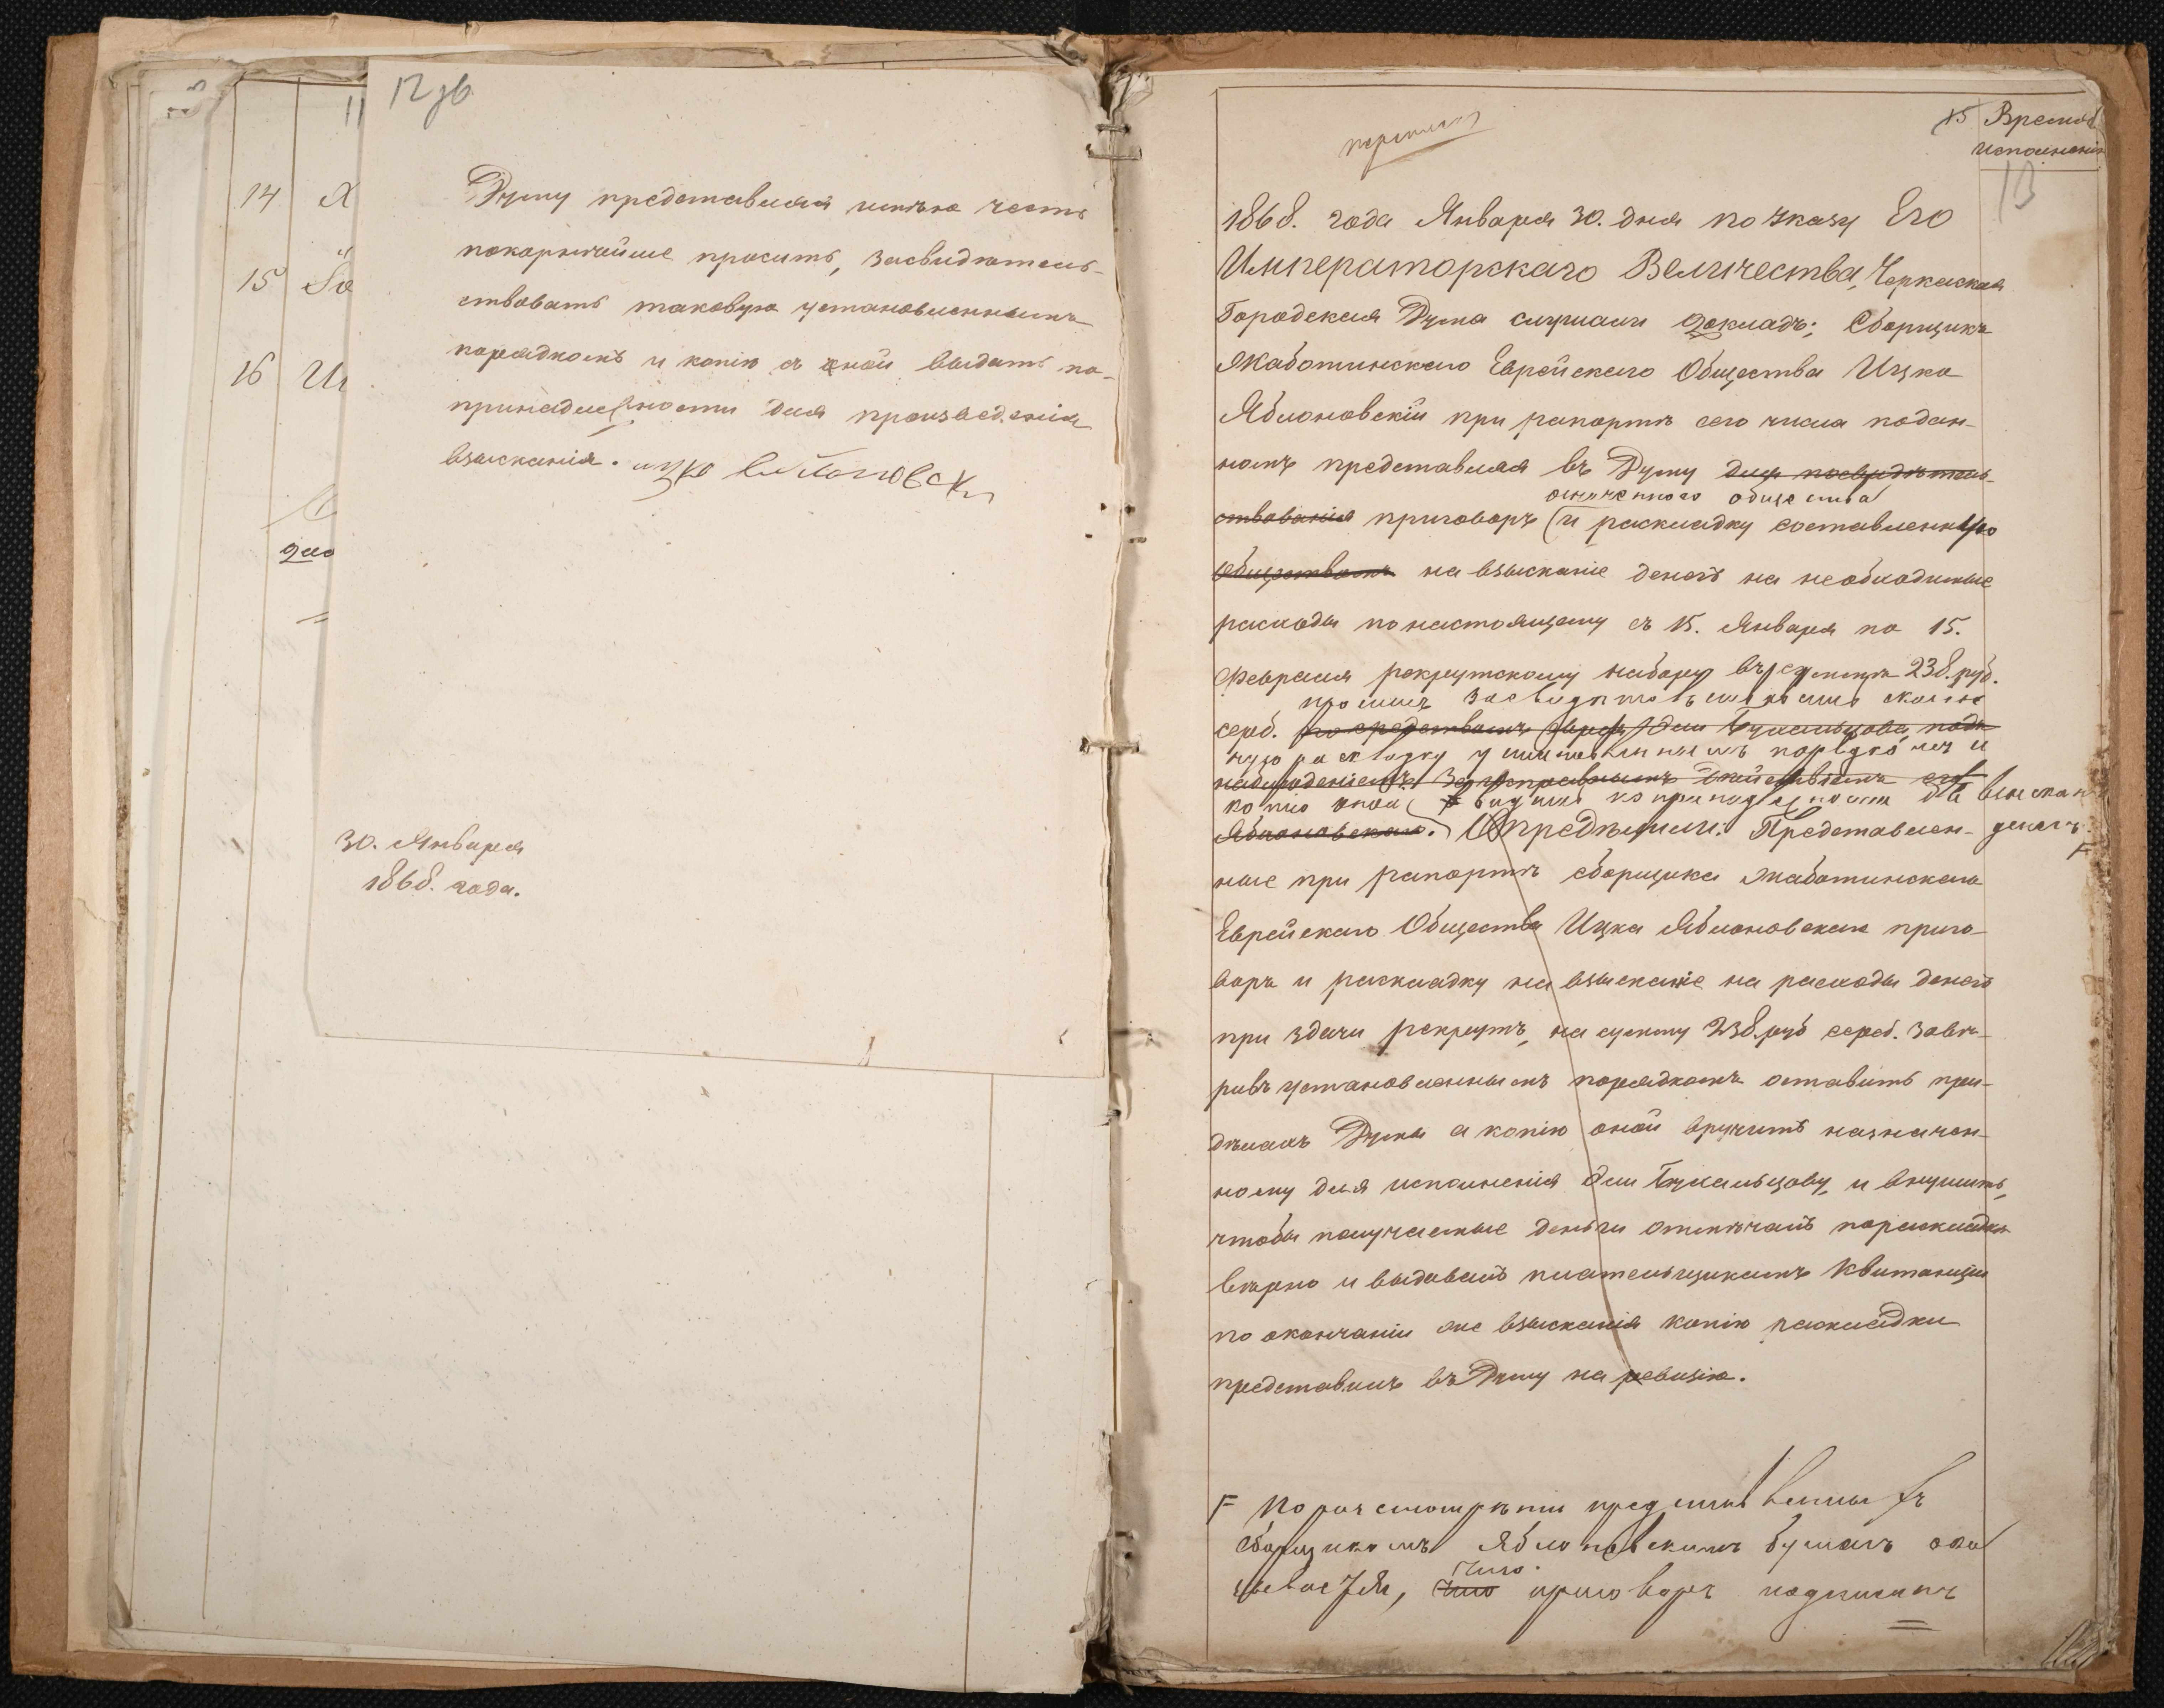 12 зв
11
14 Я
15
16 И
Думу представляя имѣю честь
покорнѣйше просить, засвидѣтель-
ствовать таковую установленнымъ
порядкомъ и копію съ оной выдать по-
принадлежности для произведенія
взысканія. ицко
30. Января
1868. года.
15 Время
исполненія
13
1868. года Января 30. дня по указу Его
Императорскаго Величества, Черкаская
Городская Дума слушали докладъ: Сборщикъ
Жаботинскаго Еврейскаго Общества Ицко
Яблоновскій при рапортѣ сего числа подан-
номъ представляя въ Думу для посвидѣтель-
означеннаго общества
ствованія приговоръ и раскладку составленную
Обществомъ на взысканіе денегъ на необходимые
расходы по настоящему съ 15. Января по 15.
Февраля рекрутскому набору въ суммѣ 238. руб.
проситъ засвидѣтельствовать
сереб. по средствамъ
раскладку установленнымъ порядкомъ и
наблюденіемъ за исправнымъ дѣйствіемъ его
копію оной выдать по принадлежности для взыскан
Яблоновскаго. Опредѣлили: Представлен- денегъ.
ные при рапортѣ сборщика Жаботинскаго
Еврейскаго Общества Ицка Яблоновскаго приго-
воръ и раскладку на взысканіе на расходы денегъ
при здачи рекрутъ, на сумму 238. руб сереб. завѣ-
ривъ установленнымъ порядкомъ оставить при-
дѣлахъ Думы а копію оной вручить назначен-
ному для исполненія и внушить,
чтобы получаемые деньги отмѣчалъ по раскладкѣ
вѣрно и выдавалъ плательщикамъ квитанціи
по окончаніи же взысканія копію раскладки
представилъ въ Думу на ревизію.
F По разсмотрѣніи представленныхъ
сборщикомъ Яблоновскимъ бумагъ ока
что
что приговоръ подписанъ